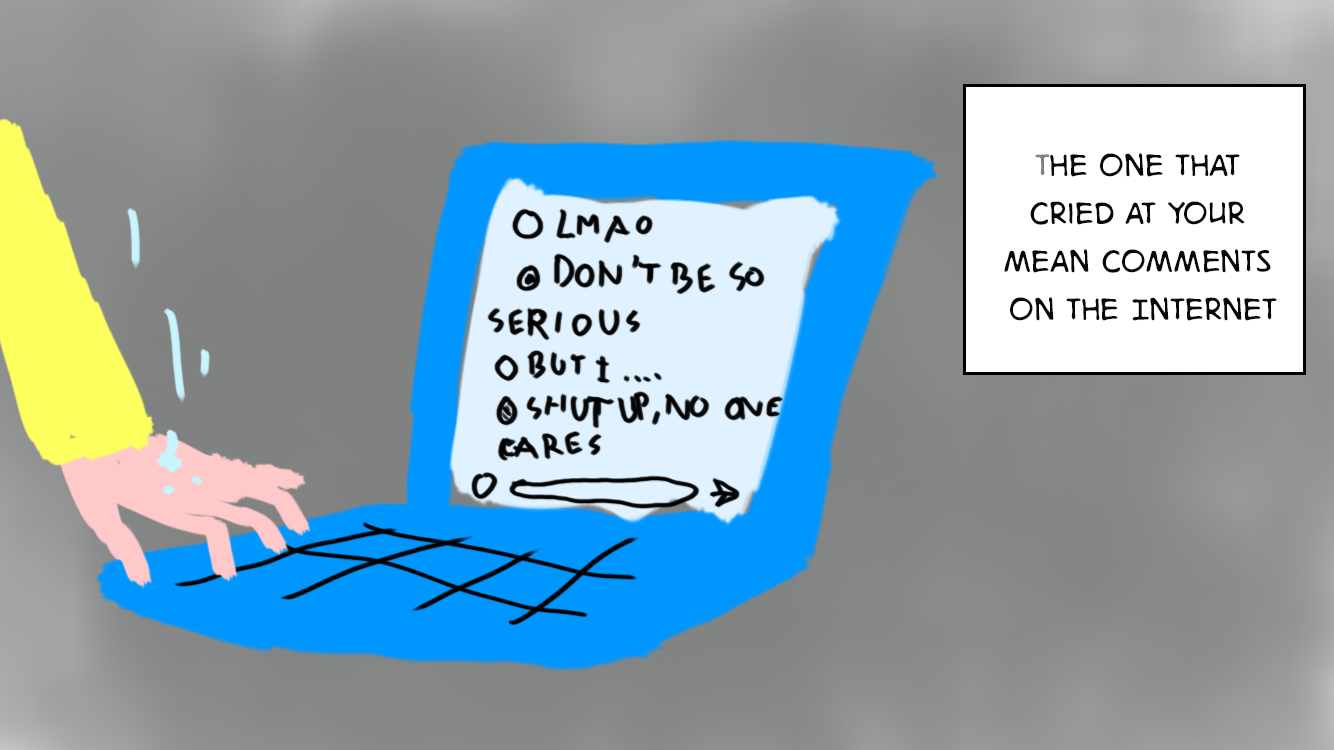 LMAO
DON'T BE SO
SERIOUS
BUT I ....
SHUT UP, NO ONE
CARES
THE ONE THAT
CRIED AT YOUR
MEAN COMMENTS
ON THE INTERNET